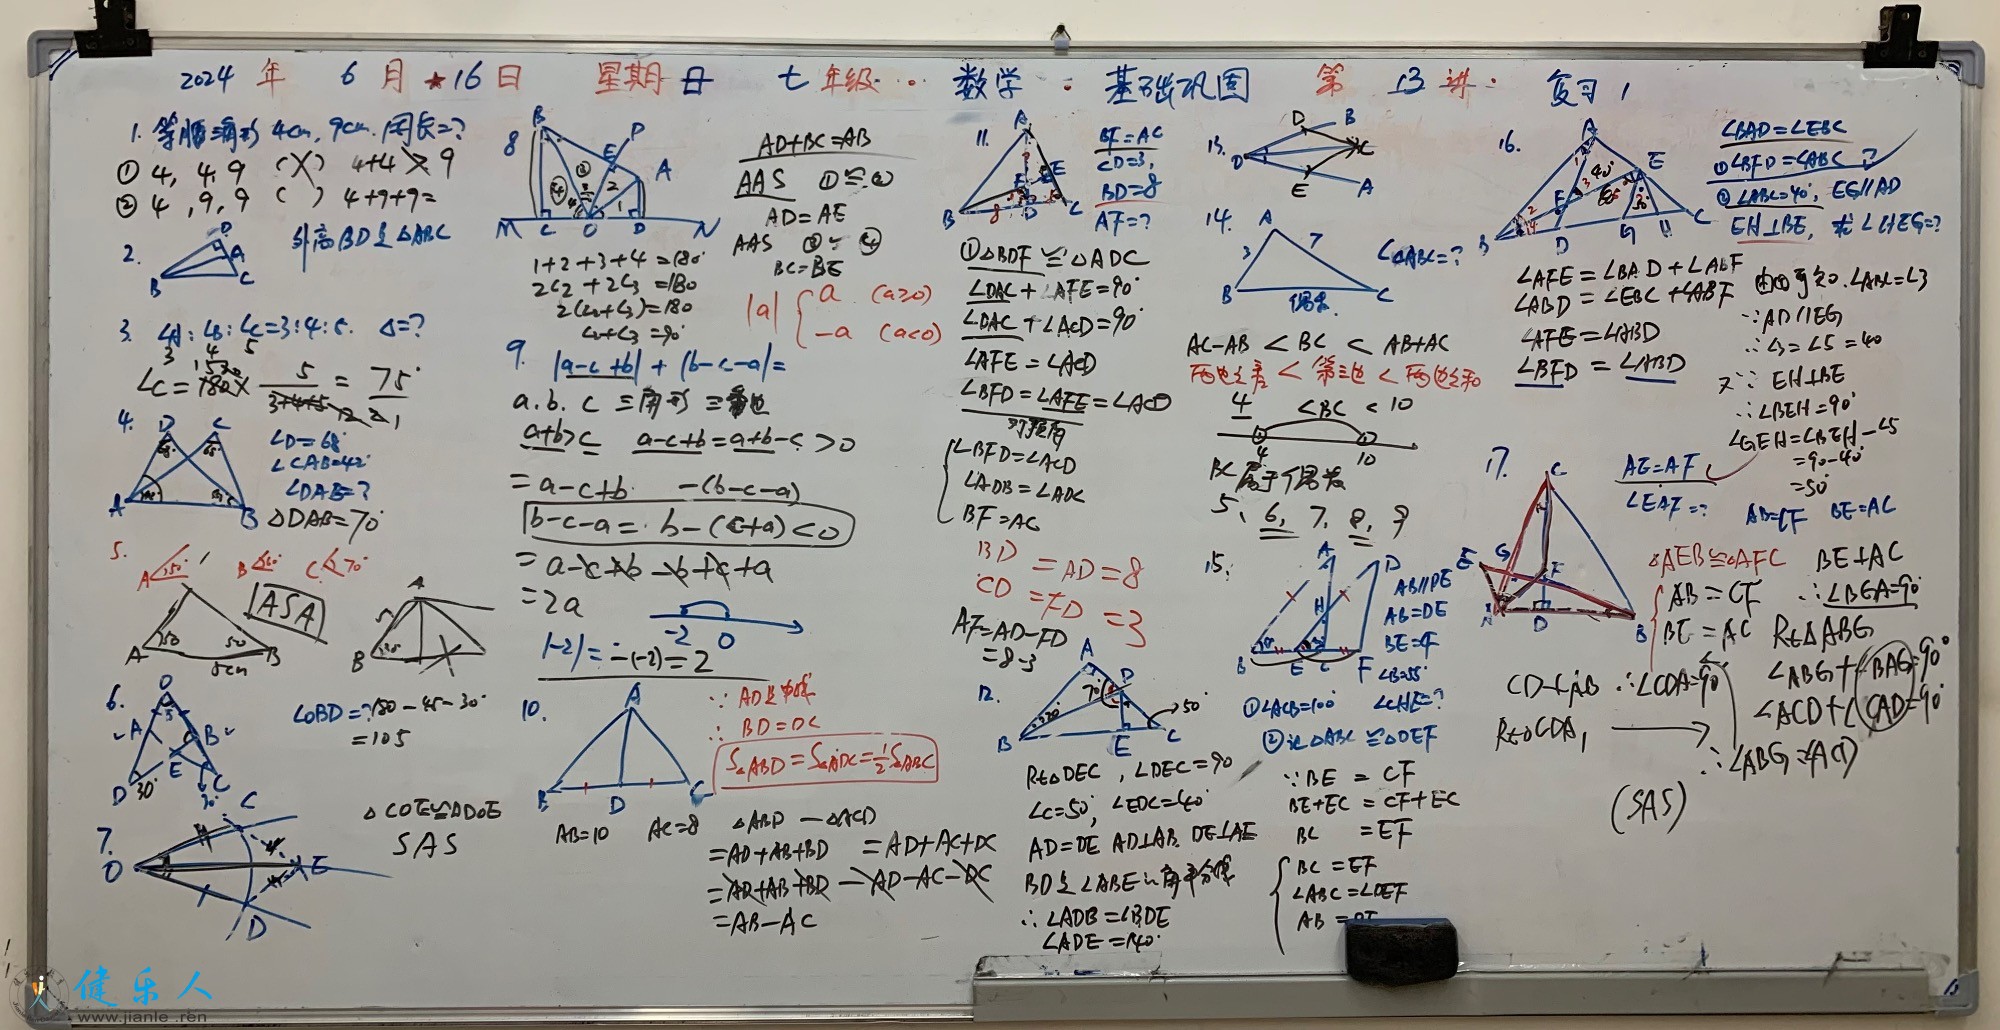 2024 年 6 月 16 日 星期日 七年级 数学 : 基础巩固 第 13 讲 : 复习 1
1. 等腰三角形 4cm, 9cm. 周长=?
① 4, 4, 9 (×) 4+4 9
② 4, 9, 9 ( ) 4+9+9=
2. 外高BD是△ABC
D
A
B C
3. ∠A:∠B:∠C=3:4:5. △=?
3 4 5
∠C=180× 5/3+4+5 = 75°
4. D C
A B
∠D=68°
∠CAB=42°
∠DAB=?
△DAB=70°
5. A 50° B 60° C 70°
ASA
A B
5cm
50 50
A
B
6. O
A B
E
D C
30°
∠OBD=?180-45-30°
=105
7. O C E D
△COE≌△DOE
SAS
8 B P
E A
M C O D N
1+2+3+4=180°
2∠2+2∠3=180
2(∠2+∠3)=180
∠2+∠3=90°
AD+BC=AB
AAS ①≌②
AD=AE
AAS ③≌④
BC=BE
|a| { a (a≥0)
-a (a<0)
9. |a-c+b|+|b-c-a|=
a.b.c 三角形三边
a+b>c a-c+b=a+b-c>0
=a-c+b -(b-c-a)
b-c-a= b-(c+a)<0
=a-c+b-b+c+a
=2a
-2 0
|-2|=-(-2)=2
10. A
B D C
∵AD是中线
∴BD=DC
S△ABD=S△ADC=1/2S△ABC
AB=10 AC=8
△ABD-△ACD
=AD+AB+BD =AD+AC+DC
=AD+AB+BD-AD-AC-DC
=AB-AC
11. A
E
F
B D C
BF=AC
CD=3,
BD=8
AF=?
①△BDF≌△ADC
∠DAC+∠AFE=90°
∠DAC+∠ACD=90°
∠AFE=∠ACD
∠BFD=∠AFE=∠ACD
对顶角
∠BFD=∠ACD
∠ADB=∠ADC
BF=AC
BD=AD=8
CD=FD=3
AF=AD-FD
=8-3
12. A
D
B E C
50°
Rt△DEC, ∠DEC=90
∠C=50°, ∠EDC=40°
AD=DE AD⊥AB, DE⊥AE
BD是∠ABE的角平分线
∴∠ADB=∠BDE
∠ADE=140°
13. D B
O C
E A
14. A
3 7
B 偶数 C
C△ABC=?
AC-AB<BC<AB+AC
两边之差<第三边<两边之和
4 <BC<10
4 10
BC属于偶数
5、6, 7, 8, 9
15. A D
H
B E C F
AB∥DE
AB=DE
BE=CF
∠B=55°
①∠ACB=100° ∠CHE=?
②证△ABC≌△DEF
∵BE=CF
BE+EC=CF+EC
BC =EF
BC=EF
∠ABC=∠DEF
AB=
16. A
E
F
B D G H C
∠BAD=∠EBC
①∠BFD=∠ABC ?
②∠ABC=40°, EG∥AD
EH⊥BE, 求∠HEG=?
∠AFE=∠BAD+∠ABF
∠ABD=∠EBC+∠ABF
∠AFE=∠ABD
∠BFD=∠ABD
由①可知.∠ABC=∠3
∵AD∥EG
∴∠3=∠5=40
又∵EH⊥BE
∴∠BEH=90°
∠GEH=∠BEH-∠5
=90-40°
=50°
17. C
E G
F
D B
AE=AF
∠EAF=?
AB=CF BE=AC
△AEB≌△AFC BE⊥AC
AB=CF ∴∠BGA=90°
BE=AC Rt△ABG
∠ABG+∠BAG=90°
∠ACD+∠CAD=90°
CD⊥AB ∴∠CDA=90°
Rt△CDA
∴∠ABG=∠ACD
(SAS)
健乐人
www.jianle.ren